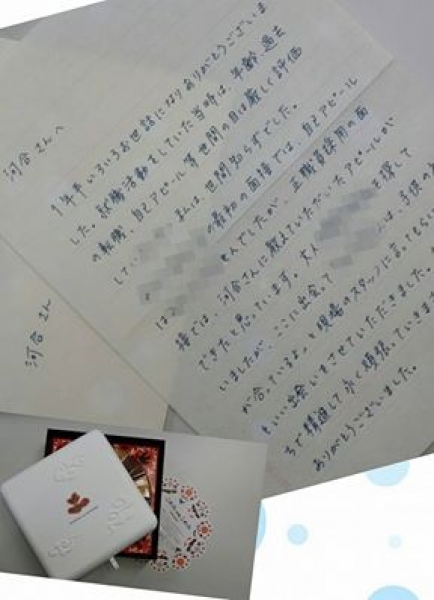 河合さんへ
1年半いろいろお世話になりありがとうございま
した。就職活動をしていた当時は、年齢、過去
の転職、自己アピール等世間の目は厳しく評価
して
まんは、世間知らずでした。
は
の最初の面接では、自己アピール
せんでしたが、正職員採用の面
接では、河合さんに教えていただいたアピールが
できたと思っています。
を探して
いましたが、ここに出会って
は、子供の
が合っているよ。と現場のスタッフに言ってもらい
いい出会いをさせていただきました。
ちで精進して永く頑張っていきます
ありがとうございました。
河合さん